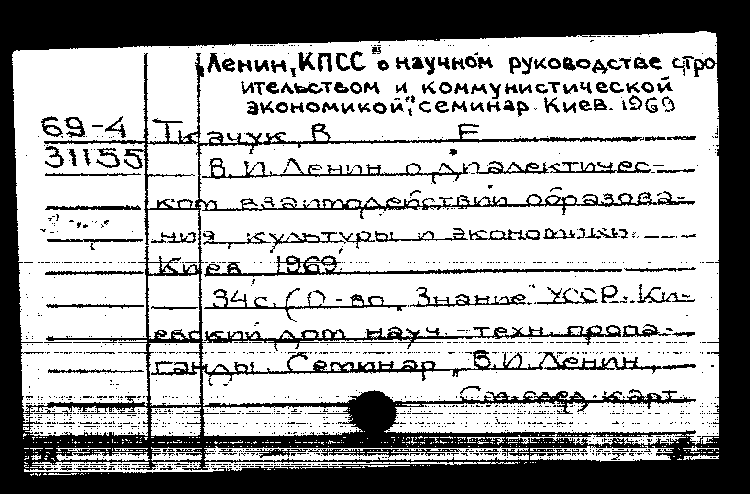 „Ленин, КПСС о научном руководстве стро
ительством и коммунистической
экономикой", семинар. Киев. 1969
69-4 Ткачук, В Е
31155
В. И. Ленин о диалектичес-
ком взаимодействии образова-
ния, культуры и экономики.
Киев, 1969
34 с. (О-во „Знание" УССР. Ки-
евский дом науч.-техн. пропа-
ганды. Семинар „В.И. Ленин,
См. след. карт